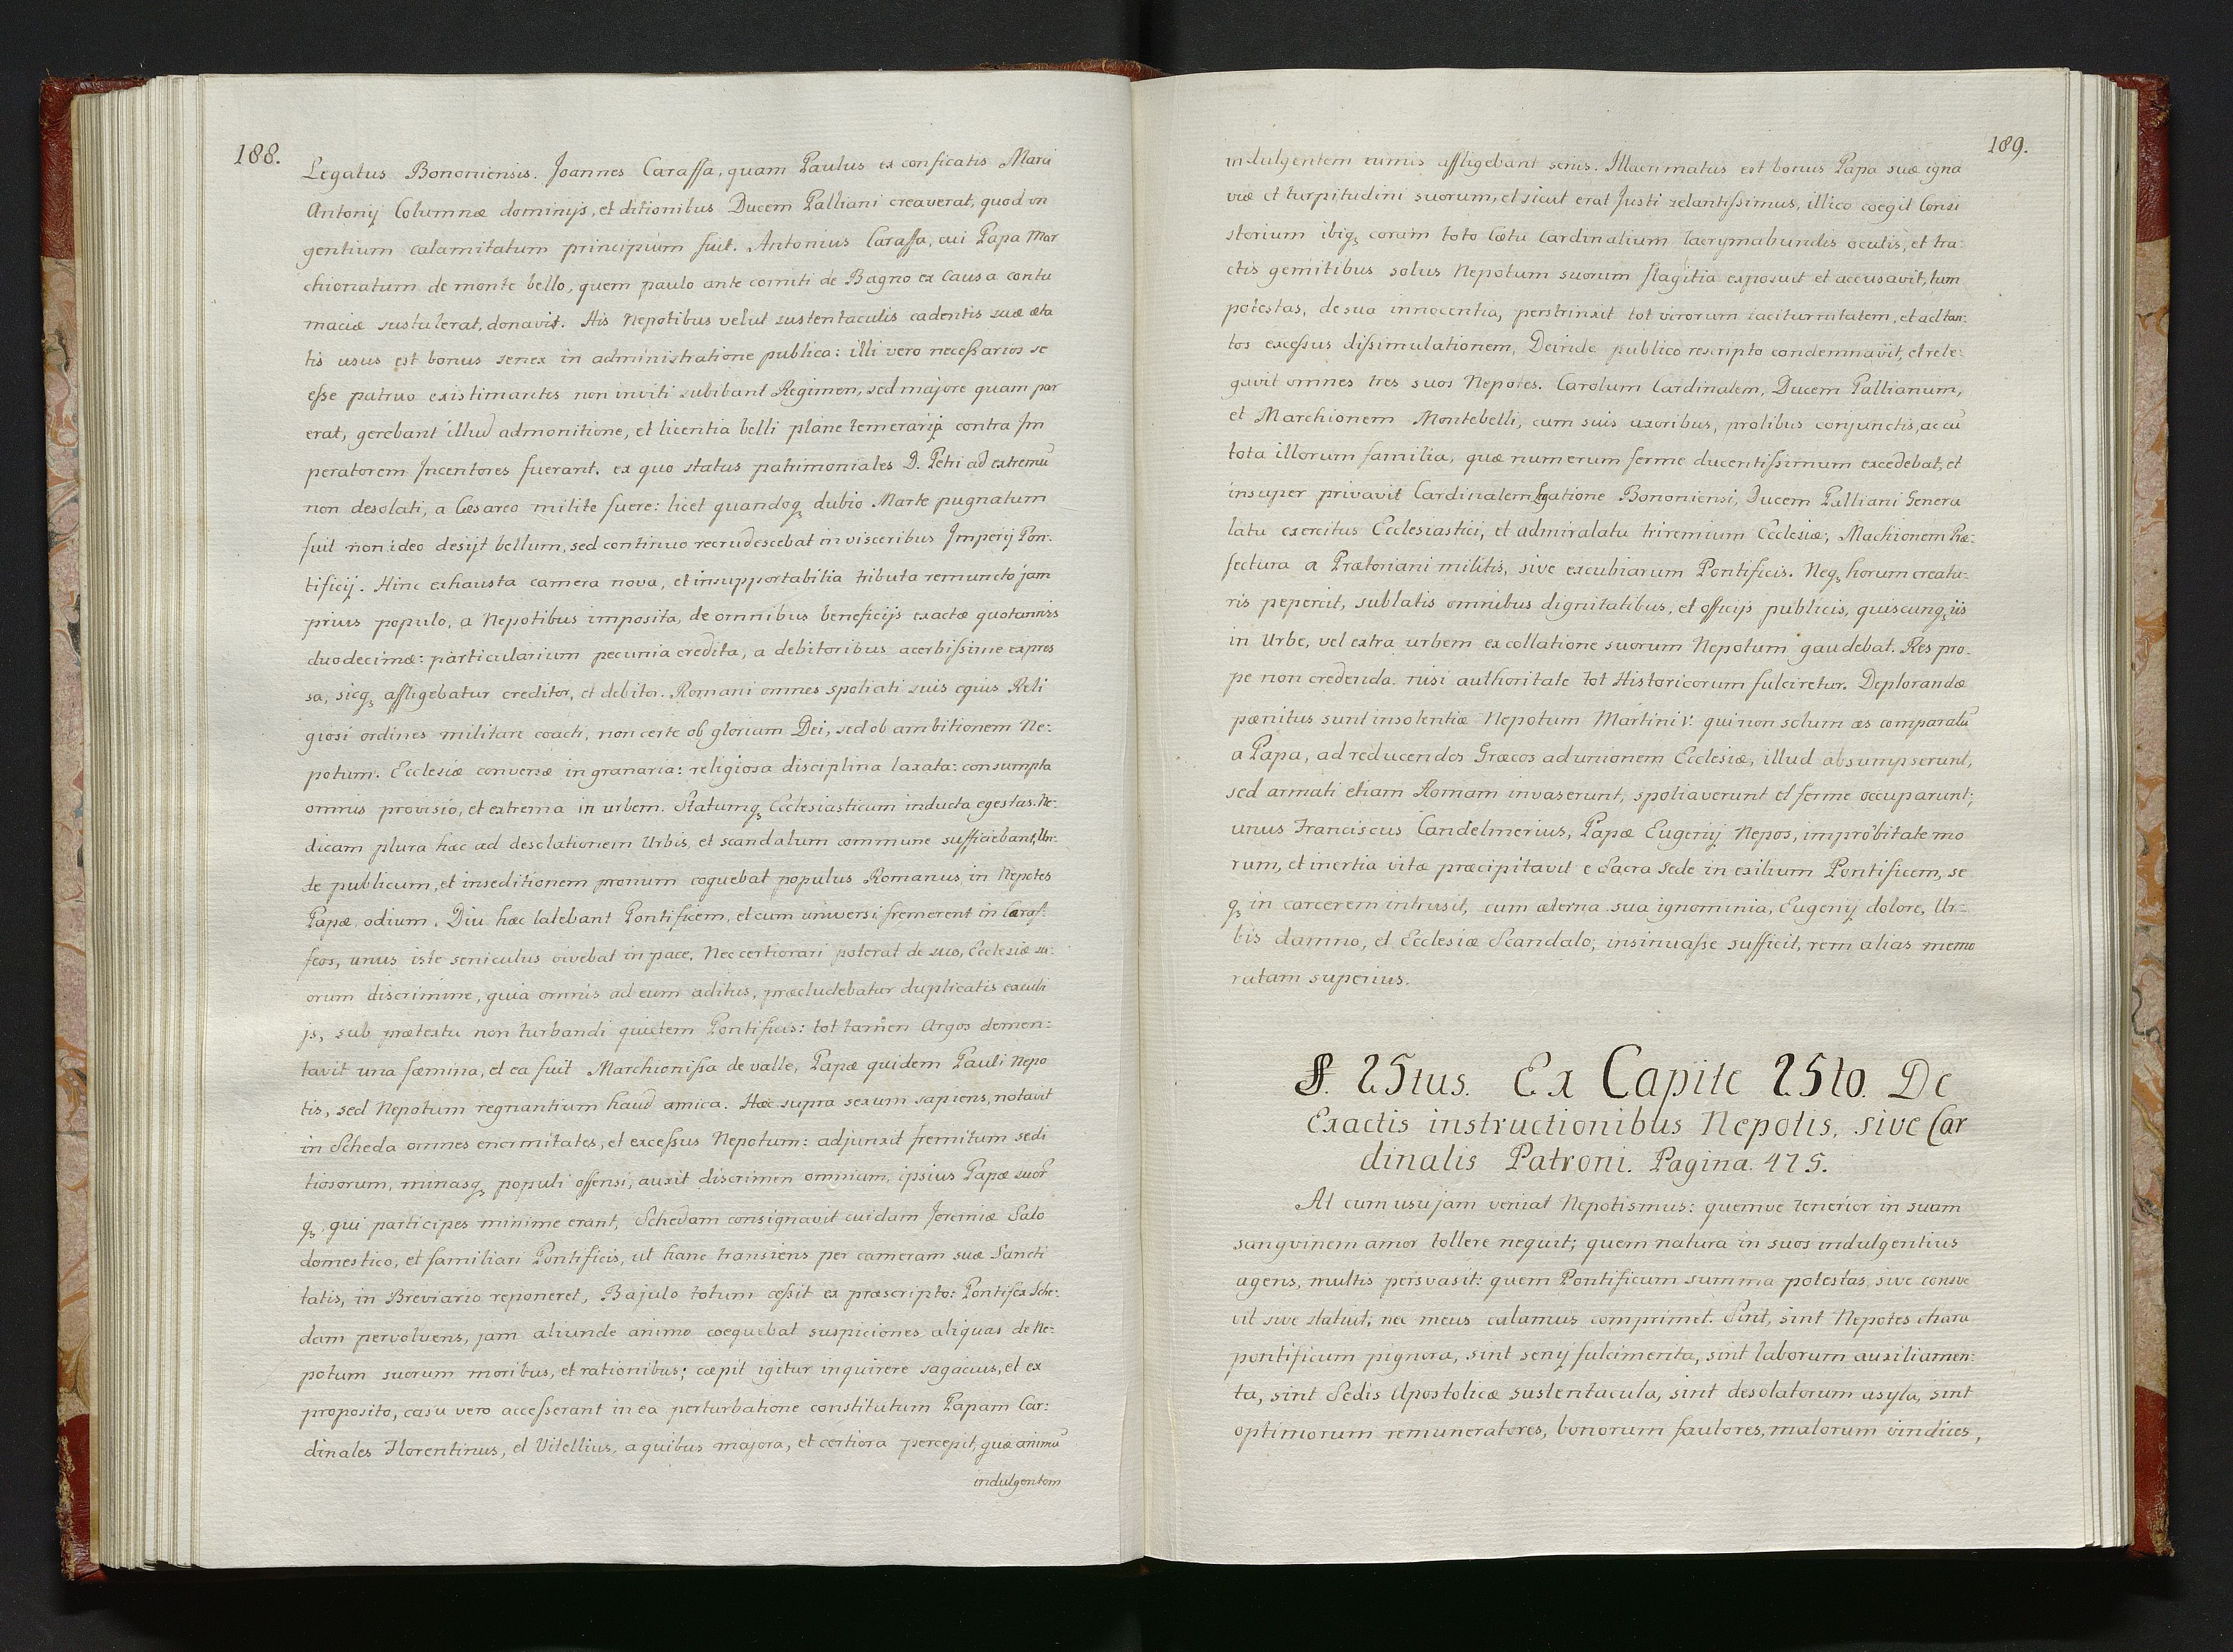 188.
Legatus Bononiensis. Joannes Caraffa, quam Paulus ex conficatis Marci
Antonij Columnæ dominijs, et ditionibus Ducem Palliani creaverat, quod in
gentium calamitatum principium fuit. Antonius Caraffa, cui Papa Mar
chionatum de monte bello, quem paulo ante comiti de Bagno ex causa contu
maciæ sustulerat, donavit. His Nepotibus velut sustentaculis cadentis suæ æta
tis usus est bonus senex in administratione publica: illi vero necessarios se
esse patruo existimantes non inviti subibant Regimen, sed majore quam par
erat, gerebant illud admonitione, et licentia belli plane temerarij contra Im
peratorem Incentores fuerant. ex quo status patrimoniales D. Petri ad extremū
non desolati, a Cæsareo milite fuere: licet quandoq, dubio Marte pugnatum
fuit non ideo desijt bellum, sed continuo recrudescebat in visceribus Imperij Pon-
tificij. Hinc exhausta camera nova, et insupportabilia tributa remuncto jam
prius populo, a Nepotibus imposita, de omnibus beneficijs exactæ quotannis
duodecimæ: particularium pecunia credita, a debitoribus acerbissime expres
sa, sicq, affligebatur creditor, et debitor. Romani omnes spoliati suis equis Reli
giosi ordines militare coacti, non certe ob gloriam Dei, sed ob ambitionem Ne:
potum. Ecclesiæ conversæ in granaria: religiosa disciplina laxata: consumpta
omnis provisio, et extrema in urbem. Statumq, Ecclesiasticum inducta egestas. Ne:
dicam plura hæc ad desolationem Urbis, et scandalum commune sufficiebant, Un:
de publicum, et in seditionem pronum coquebat populus Romanus in Nepotes
Papæ, odium. Diu hæc latebant Pontificem, et cum universi fremerent in Caraf:
feos, unus iste seniculus vivebat in pace. Nec certiorari poterat de suo, Ecclesiæ su:
orum discrimine, quia omnis ad eum aditus, præcludebatur duplicatis excubi
js, sub prætextu non turbandi quietem Pontificis: tot tamen Argos demen:
tavit una fæmina, et ea fuit Marchionissa de valle, Papæ quidem Pauli Nepo
tis, sed Nepotum regnantium haud amica. Hæc supra sexum sapiens, notavit
in Scheda omnes enormitates, et excessus Nepotum: adjunxit fremitum sedi
tiosorum, minasq, populi offensi, auxit discrimen omnium, ipsius Papæ suor̄
q, qui participes minime erant, Schedam consignavit cuidam Jeremiæ Salo
domestico, et familiari Pontificis, ut hanc transiens per cameram suæ Sancti
tatis, in Breviario reponeret, Bajulo totum cessit ex præscripto: Pontifex Sche:
dam pervolvens, jam aliunde animo coquebat suspiciones aliquas de Ne:
potum suorum moribus, et rationibus; cæpit igitur inquirere sagacius, et ex
proposito, casu vero accesserant in ea perturbatione constitutum Papam Car:
dinales Florentinus, et Vitellius, a quibus majora, et certiora percepit, quæ animū
indulgentem
189.
indulgentem nimis affligebant senis. Illacrimatus est bonus Papa suæ igna
viæ et turpitudini suorum, et sicut erat Justi zelantissimus, illico coegit Consi
storium ibiq, coram toto Cætu Cardinalium lacrymabundis oculis, et tra:
ctis gemitibus solus Nepotum suorum flagitia exposuit et accusavit, tum
potestas, de sua innocentia, perstrinxit tot virorum taciturnitatem, et ad tan:
tos excessus dissimulationem, Deinde publico rescripto condemnavit, et rele:
gavit omnes tres suos Nepotes. Carolum Cardinalem, Ducem Pallianum,
et Marchionem Montebelli, cum suis uxoribus, prolibus conjunctis, ac cū
tota illorum familia, quæ numerum ferme ducentissimum excedebat, et
insuper privavit Cardinalem Legatione Bononiensi, Ducem Palliani Genera
latu exercitus Ecclesiastici, et admiralatu triremium Ecclesiæ, Machionem Præ:
fectura a Prætoriani militis, sive excubiarum Pontificis. Neq, horum creatu-
ris pepercit, sublatis omnibus dignitatibus, et officijs publicis, quiscunq, iis
in Urbe, vel extra urbem ex collatione suorum Nepotum gaudebat. Res pro-
pe non credenda. nisi authoritate tot Historicorum fulciretur. Deplorandæ
pænitus sunt insolentiæ Nepotum Martini V. qui non solum æs comparatū
a Papa, ad reducendos Græcos ad unionem Ecclesiæ, illud absumpserunt,
sed armati etiam Romam invaserunt, spoliaverunt et ferme occuparunt;
unus Franciscus Candelmerius, Papæ Eugenij Nepos, improbitate mo
rum, et inertia vitæ præcipitavit e Sacra Sede in exilium Pontificem, se
q, in carcerem intrusit, cum æterna sua ignominia, Eugenij dolore, Ur:
bis damno, et Ecclesiæ Scandalo; insinuasse sufficit, rem alias memo
ratam superius.
§. 25tus. Ex Capite 25to. De
Exactis instructionibus Nepotis, sive Car
dinalis Patroni. Pagina. 475.
At cum usu jam veniat Nepotismus: quemve tenerior in suum
sangvinem amor tollere nequit; quem natura in suos indulgentius
agens, multis persvasit: quem Pontificum summa potestas, sive consve
vit sive statuit; nec meus calamus comprimet. Sint, sint Nepotes chara
pontificum pignora, sint senij fulcimenta, sint laborum auxiliamen:
ta, sint Sedis Apostolicæ sustentacula, sint desolatorum asyla, sint
optimorum remuneratores, bonorum fautores, malorum vindices,